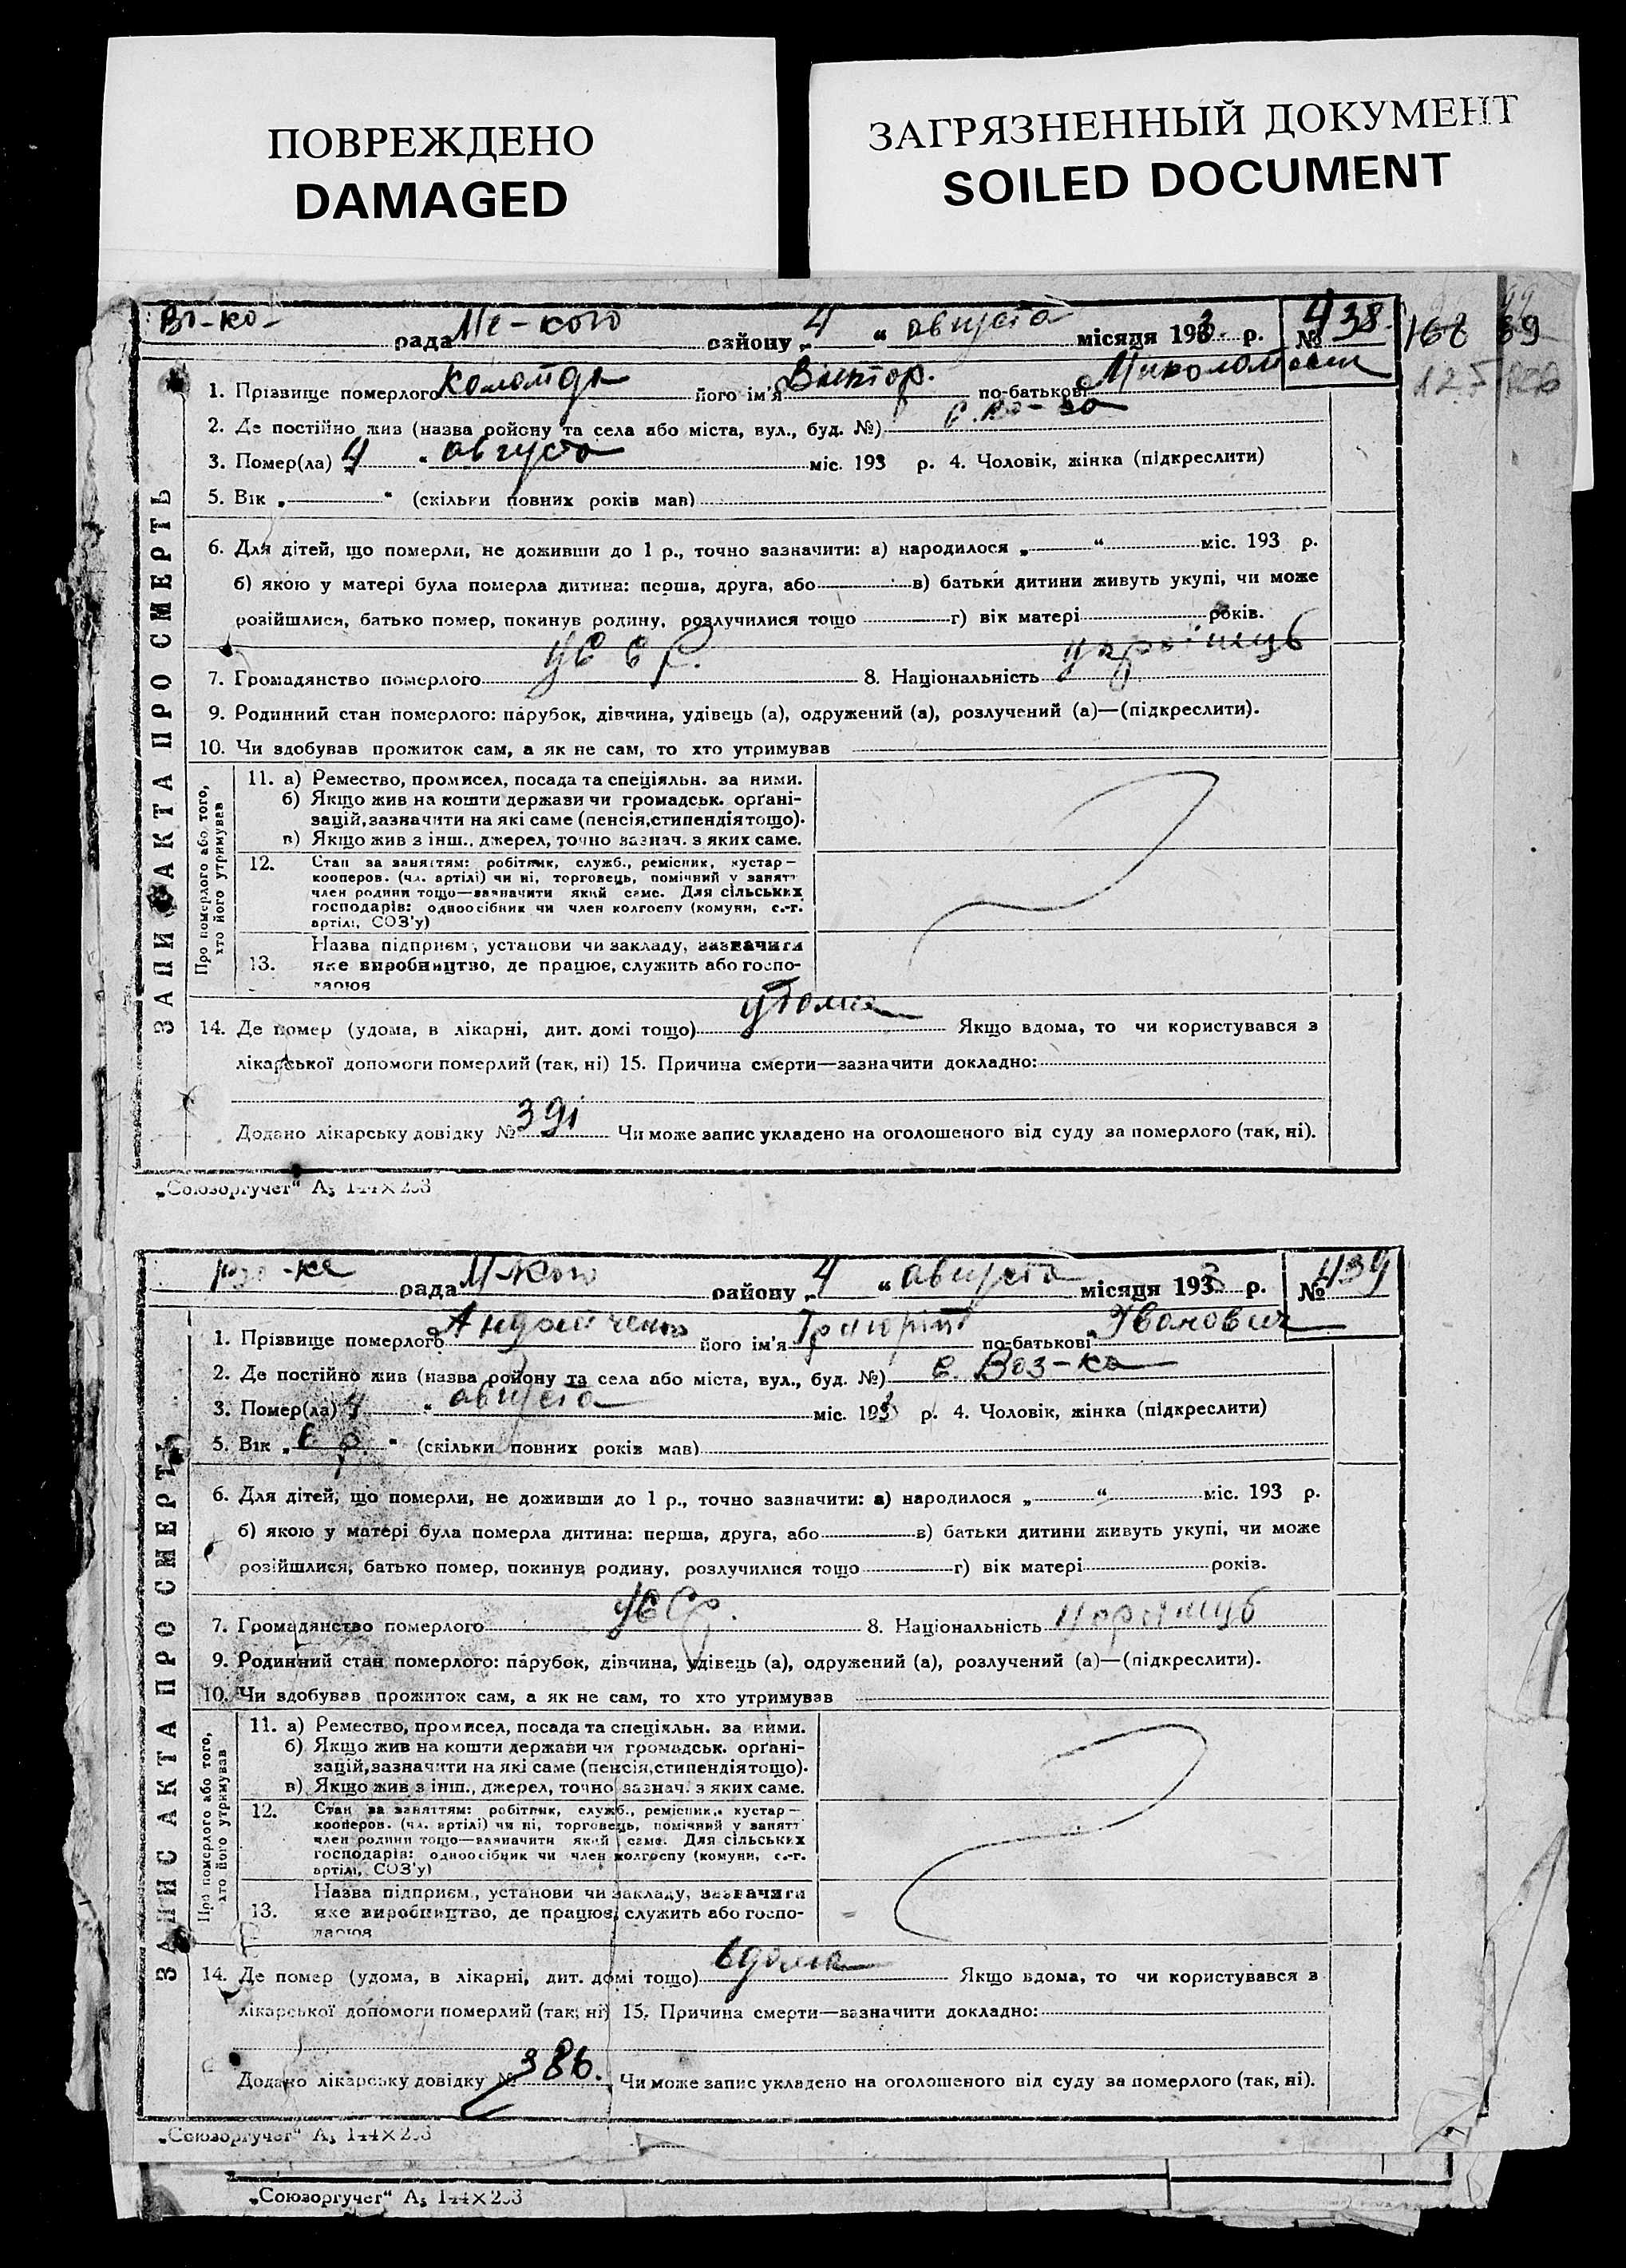 ПОВРЕЖДЕНО
DAMAGED
ЗАГРЯЗНЕННЫЙ ДОКУМЕНТ
SOILED DOCUMENT
рада Ме-кого району „4“ августа місяця 1933 р. № 438
1. Прізвище померлого його ім'я Виктор. по-батькові
2. Де постійно жив (назва ройону та села або міста, вул., буд. №)
3. Помер(ла) 4 “ августа міс. 193 р. 4. Чоловік, жінка (підкреслити)
5. Вік „ “ (скільки повних років мав)
6. Для дітей, що померли, не доживши до 1 р., точно зазначити: а) народилося „ “ міс. 193 р.
б) якою у матері була померла дитина: перша, друга, або в) батьки дитини живуть укупі, чи може
розійшлися, батько помер, покинув родину, розлучилися тощо г) вік матері років.
7. Громадянство померлого УССР. 8. Національність українць
9. Родинний стан померлого: парубок, дівчина, удівець (а), одружений (а), розлучений (а)—(підкреслити).
10. Чи здобував прожиток сам, а як не сам, то хто утримував
ЗАПИС АКТА ПРО СМЕРТЬ
Про померлого або того, хто його утримував
11. а) Ремество, промисел, посада та спеціяльн. за ними.
б) Якщо жив на кошти держави чи громадськ. орґані-
зацій, зазначити на які саме (пенсія, стипендія тощо).
в) Якщо жив з інш., джерел, точно зазнач. з яких саме.
12. Стан за заняттям: робітник, служб., ремісник, кустар—
кооперов. (чл. артілі) чи ні, торговець, помічний у занятт
член родини тощо—зазначити який саме. Для сільських
господарів: одноосібник чи член колгоспу (комуни, с.-г.
артілі, СОЗ'у)
Назва підприєм., установи чи закладу, зазначити
13. яке виробництво, де працює, служить або госпо-
дарює
14. Де помер (удома, в лікарні, дит. домі тощо) удома Якщо вдома, то чи користувався з
лікарської допомоги померлий (так, ні) 15. Причина смерти—зазначити докладно:
Додано лікарську довідку № 391 Чи може запис укладено на оголошеного від суду за померлого (так, ні).
„Союзоргучет“ А5 144×203
рада М-кого району „4“ августа місяця 1933 р. № 439
1. Прізвище померлого його ім'я по-батькові Іванович
2. Де постійно жив (назва ройону та села або міста, вул., буд. №) с. Воз-ка
3. Помер(ла) 4 “ августа міс. 1933 р. 4. Чоловік, жінка (підкреслити)
5. Вік „ 6 р. “ (скільки повних років мав)
6. Для дітей, що померли, не доживши до 1 р., точно зазначити: а) народилося „ “ міс. 193 р.
б) якою у матері була померла дитина: перша, друга, або в) батьки дитини живуть укупі, чи може
розійшлися, батько помер, покинув родину, розлучилися тощо г) вік матері років.
7. Громадянство померлого УССР. 8. Національність українць
9. Родинний стан померлого: парубок, дівчина, удівець (а), одружений (а), розлучений (а)—(підкреслити).
10. Чи здобував прожиток сам, а як не сам, то хто утримував
ЗАПИС АКТА ПРО СМЕРТЬ
Про померлого або того, хто його утримував
11. а) Ремество, промисел, посада та спеціяльн. за ними.
б) Якщо жив на кошти держави чи громадськ. орґані-
зацій, зазначити на які саме (пенсія, стипендія тощо).
в) Якщо жив з інш., джерел, точно зазнач. з яких саме.
12. Стан за заняттям: робітник, служб., ремісник, кустар—
кооперов. (чл. артілі) чи ні, торговець, помічний у занятт
член родини тощо—зазначити який саме. Для сільських
господарів: одноосібник чи член колгоспу (комуни, с.-г.
артілі, СОЗ'у)
Назва підприєм., установи чи закладу, зазначити
13. яке виробництво, де працює, служить або госпо-
дарює
14. Де помер (удома, в лікарні, дит. домі тощо) вдома Якщо вдома, то чи користувався з
лікарської допомоги померлий (так, ні) 15. Причина смерти—зазначити докладно:
Додано лікарську довідку № 386. Чи може запис укладено на оголошеного від суду за померлого (так, ні).
„Союзоргучет“ А5 144×203
„Союзоргучет“ А5 144×203